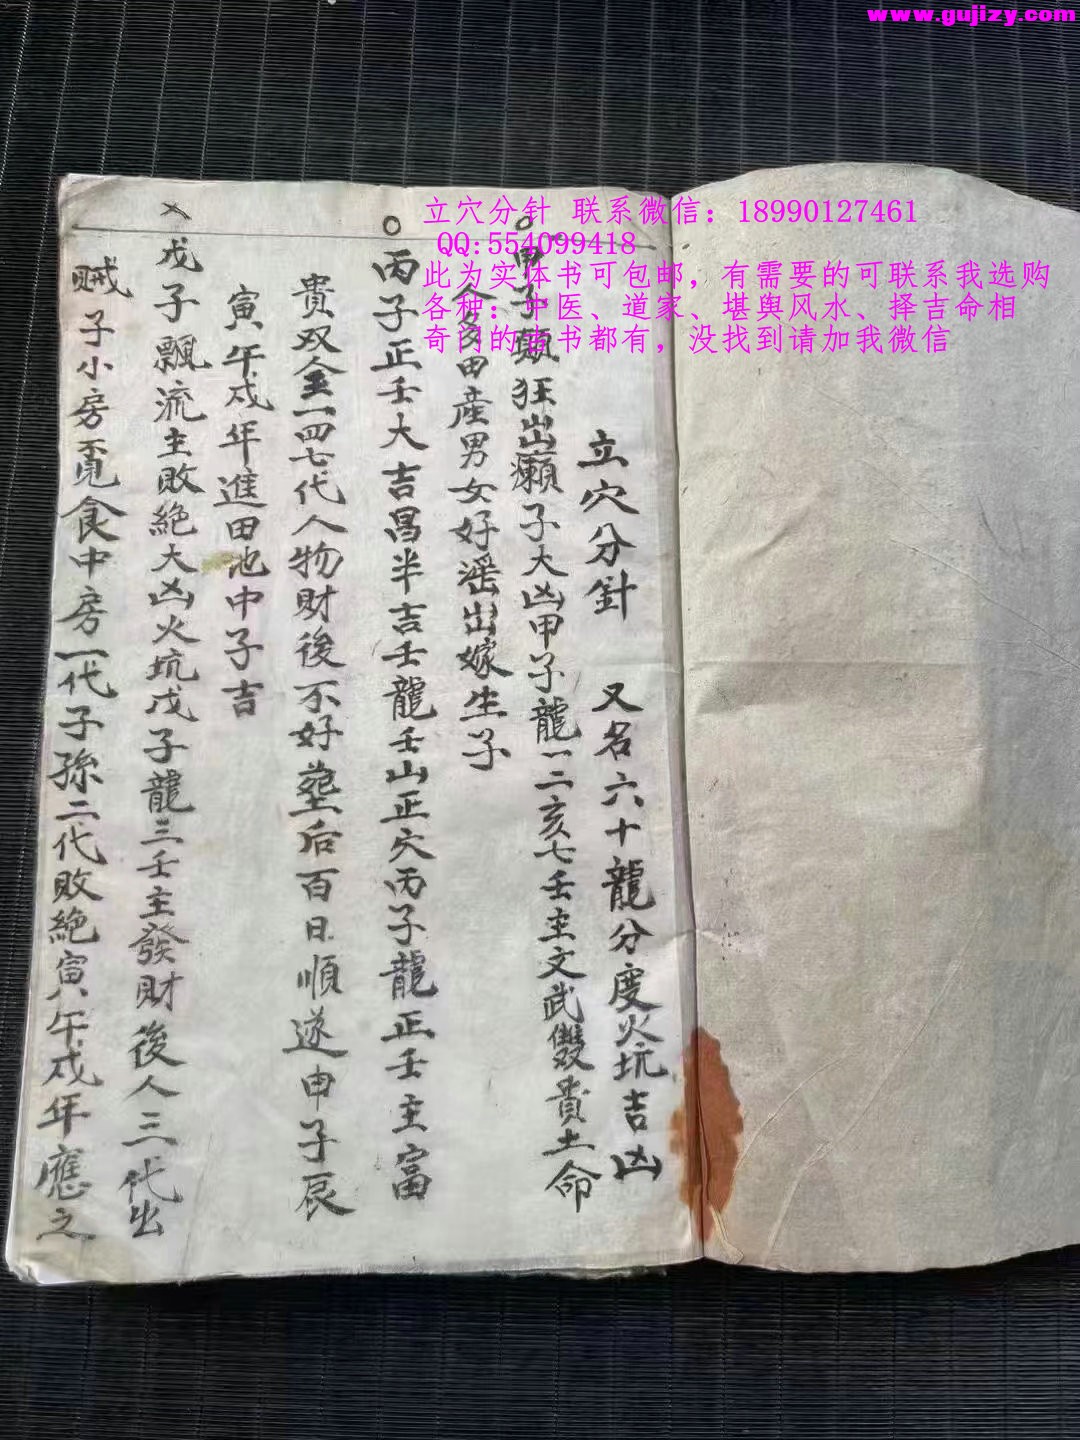 www.gujizy.com
立穴分针 联系微信：18990127461
QQ:554099418
此为实体书可包邮，有需要的可联系我选购
各种：中医、道家、堪舆风水、择吉命相
奇门的古书都有，没找到请加我微信
立穴分針 又名六十龍分度火坑吉凶
甲子顛狂出癩子大凶甲子龍一二亥七壬主文武雙貴土命
田產男女好滛出嫁生子
丙子正壬大吉昌半吉壬龍壬山正穴丙子龍正壬主富
貴双全一四七代人物財後不好塟后百日順遂申子辰
寅午戍年進田池中子吉
戊子飄流主敗絕大凶火坑戊子龍三壬主發財後人三代出
賊子小房覔食中房一代子孫二代敗絕寅午戍年應之